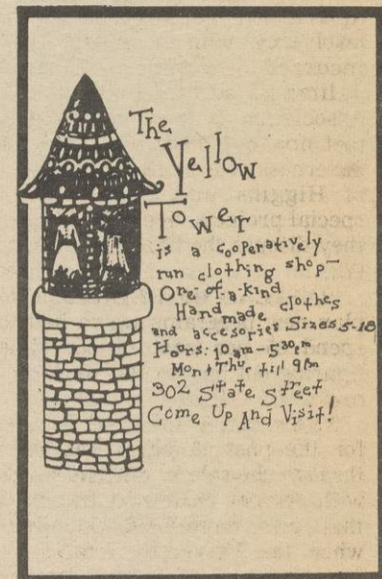 The
Yellow
Tower
is a cooperatively
run clothing shop—
One-of-a-kind
Handmade clothes
and accesories Sizes 5-18
Hours: 10 am – 5:30 pm
Mon + Thur till 9 PM
302 State Street
Come Up And Visit!